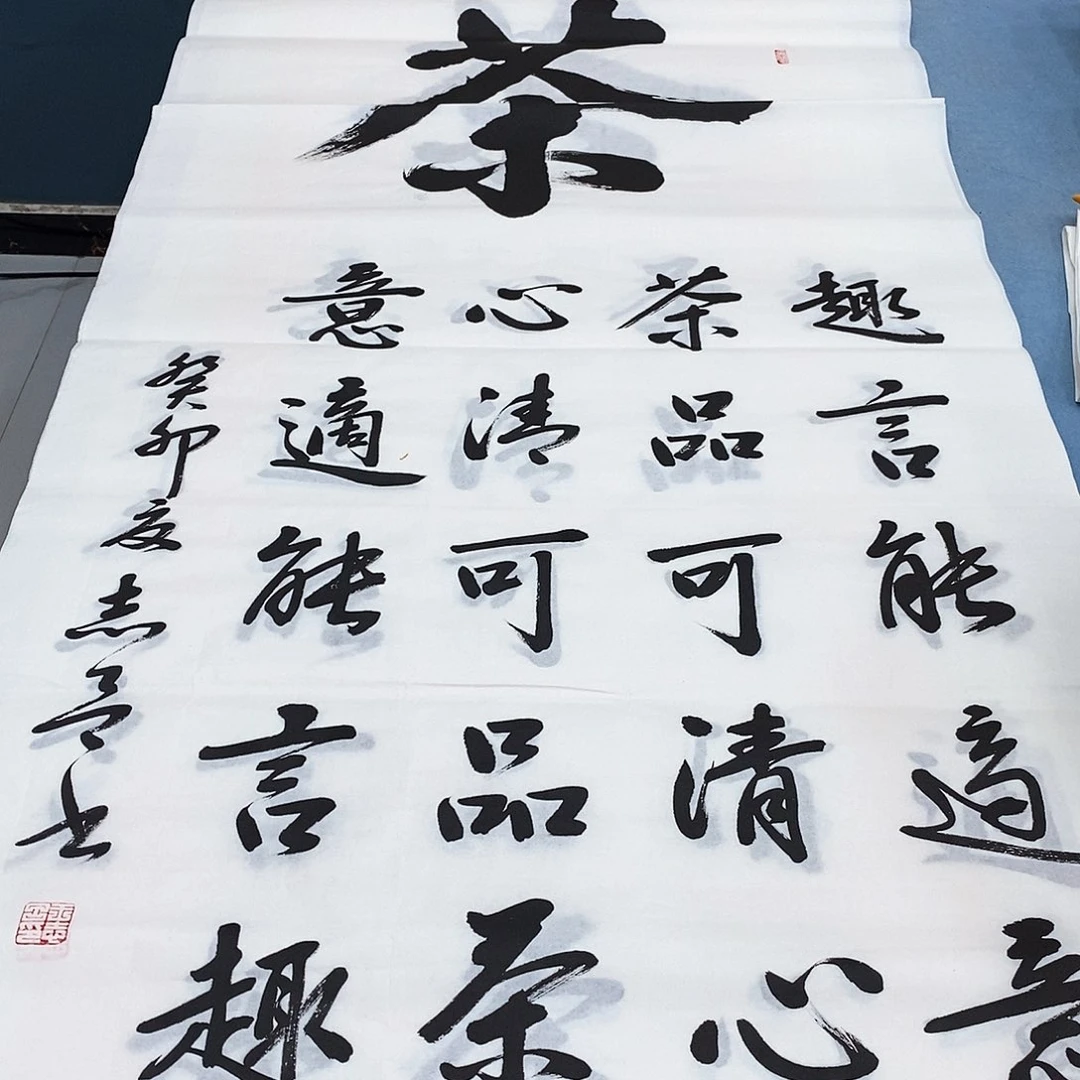 茶
趣言能適意
茶品可清心
心清可品茶
意適能言趣
癸卯夏志书